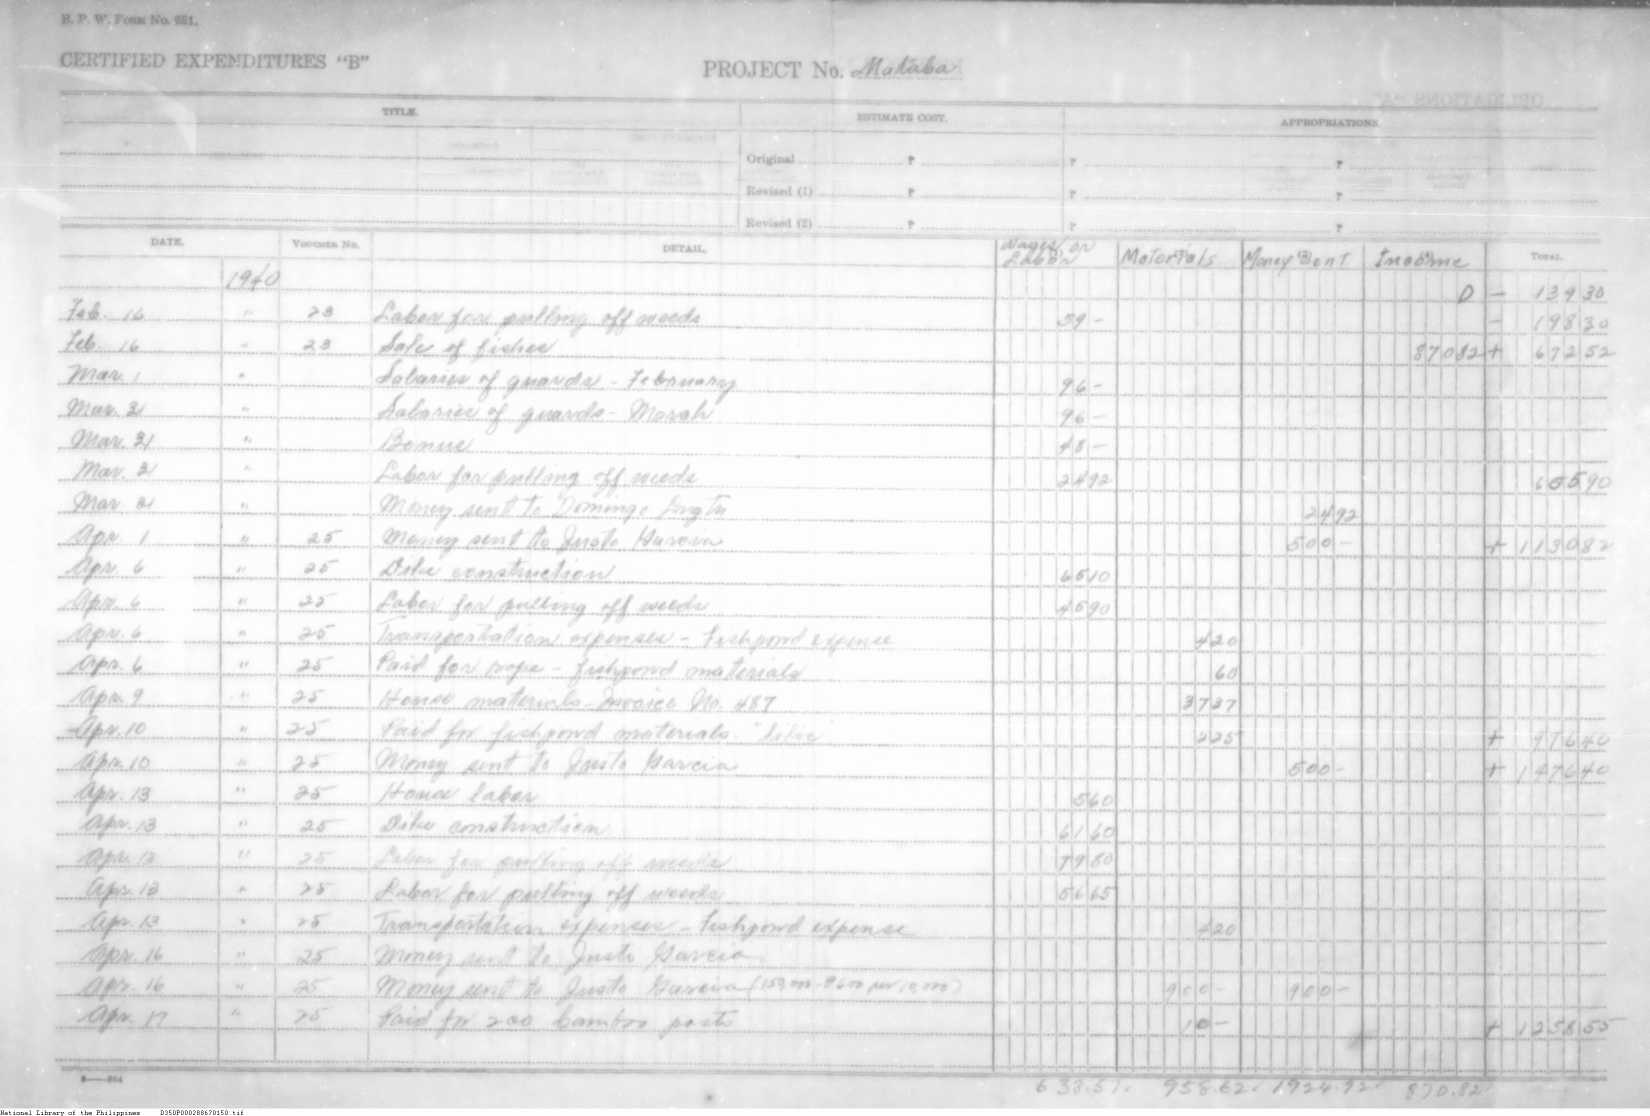 B. P. W. Form No. 651.
CERTIFIED EXPENDITURES "B"
PROJECT No. Makaba
TITLE. ESTIMATE COST. APPROPRIATIONS.
Original ₱ ₱ ₱
Revised (1) ₱ ₱ ₱
Revised (2) ₱ ₱ ₱
DATE. VOUCHER No. DETAIL. Wages or Labor Materials Money Sent Income TOTAL.
1940 D - 139 30
Feb. 16 " 23 Labor for pulling off weeds 59 - - 198 30
Feb. 16 " 23 Sale of fishes 870 82 + 672 52
Mar. 1 " Salaries of guards - February 96 -
Mar. 31 " Salaries of guards - March 96 -
Mar. 31 " Bonus 48 -
Mar. 31 " Labor for pulling off weeds 24 92 605 90
Mar. 31 " Money sent to Domingo 24 92
Apr. 1 " 25 Money sent to Justo Garcia 500 - + 1130 82
Apr. 6 " 25 Dike construction 65 10
Apr. 6 " 25 Labor for pulling off weeds 45 90
Apr. 6 " 25 Transportation expenses - Fishpond expense 4 20
Apr. 6 " 25 Paid for rope - fishpond materials 60
Apr. 9 " 25 House materials - Invoice No. 487 37 37
Apr. 10 " 25 Paid for fishpond materials 2 25 + 976 40
Apr. 10 " 25 Money sent to Justo Garcia 500 - + 1476 40
Apr. 13 " 25 House labor 5 60
Apr. 13 " 25 Dike construction 61 60
Apr. 13 " 25 Labor for pulling off weeds 79 80
Apr. 13 " 25 Labor for pulling off weeds 56 65
Apr. 13 " 25 Transportation expenses - Fishpond expense 4 20
Apr. 16 " 25 Money sent to Justo Garcia
Apr. 16 " 25 Money sent to Justo Garcia (150,000 - ₱6.00 per 10,000) 900 - 900 -
Apr. 17 " 25 Paid for 200 bamboo posts 10 - + 1258 55
638.57. 958.62. 1924.92 870.82
National Library of the Philippines D350P000288670150.tif